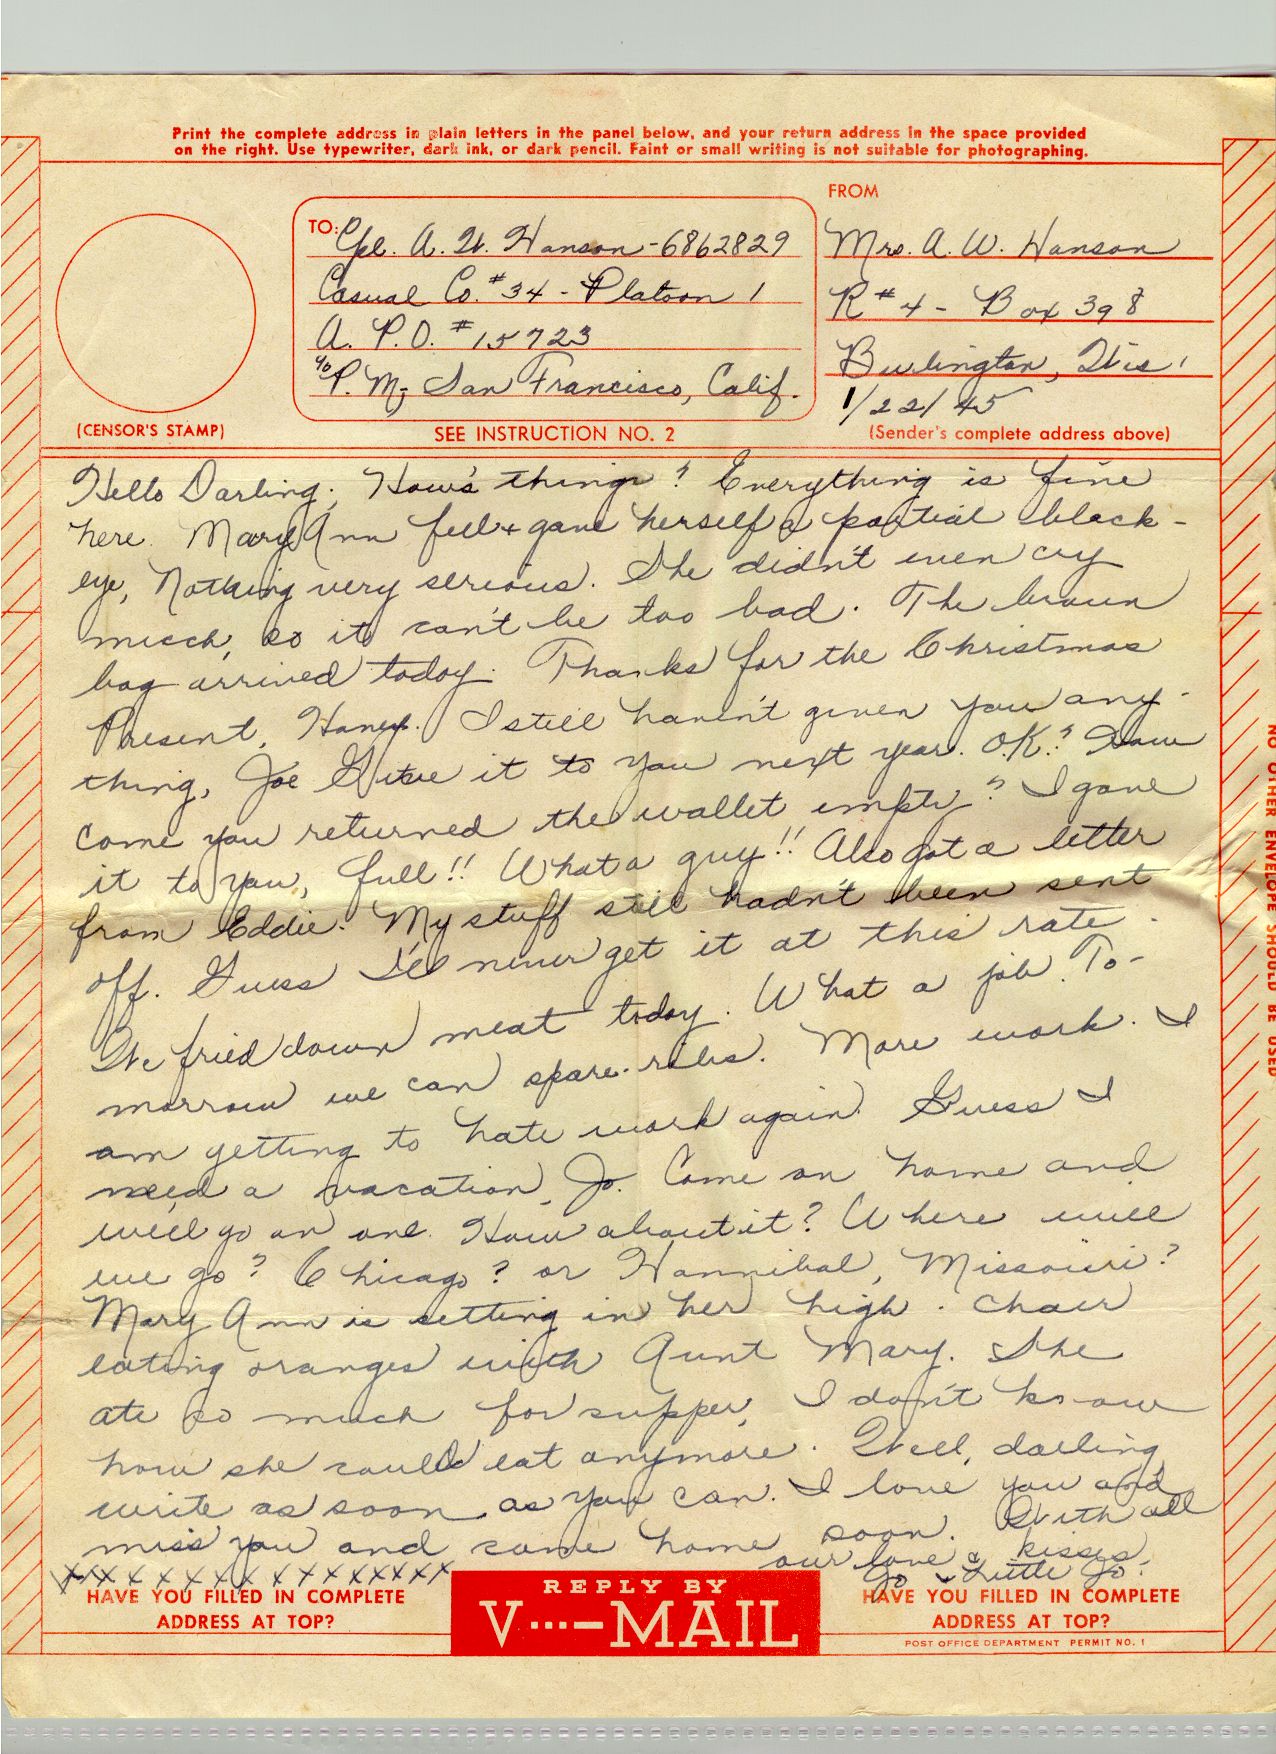 Print the complete address in plain letters in the panel below, and your return address in the space provided
on the right. Use typewriter, dark ink, or dark pencil. Faint or small writing is not suitable for photographing.
FROM
TO: Cpl. A. W. Hanson - 6862829
Casual Co. #34 - Platoon 1
A. P. O. #15723
c/o P. M; San Francisco, Calif.
Mrs. A. W. Hanson
R #4 - Box 398
Burlington, Wis.
1/22/45
(CENSOR'S STAMP)
SEE INSTRUCTION NO. 2
(Sender's complete address above)
Hello Darling; How's things? Everything is fine
here. Mary Ann fell + gave herself a partial black-
eye, Nothing very serious. She didn't even cry
much, so it can't be too bad. The brown
bag arrived today. Thanks for the Christmas
Present, Honey. I still haven't given you any-
thing, Joe. it to you next year. O.K.? How
come you returned the wallet empty? I gave
it to you, full!! What a guy!! Also got a letter
from Eddie. My stuff still hadn't been sent
off. Guess I'll never get it at this rate.
We fried down meat today. What a job. To-
morrow we can spare-ribs. More work. I
am getting to hate work again. Guess I
need a vacation, Jo. Come on home and
we'll go on one. How about it? Where will
we go? Chicago? or Hannibal, Missouri?
Mary Ann is setting in her high-chair
eating oranges with Aunt Mary. She
ate so much for supper, I don't know
how she could eat anymore. Well, darling,
write as soon as you can. I love you and
miss you and come home soon. With all
our love & kisses,
Jo & Little Jo.
xxxxxxxxxxxxxxxx
HAVE YOU FILLED IN COMPLETE
ADDRESS AT TOP?
REPLY BY
V···—MAIL
HAVE YOU FILLED IN COMPLETE
ADDRESS AT TOP?
POST OFFICE DEPARTMENT PERMIT NO. 1
NO OTHER ENVELOPE SHOULD BE USED